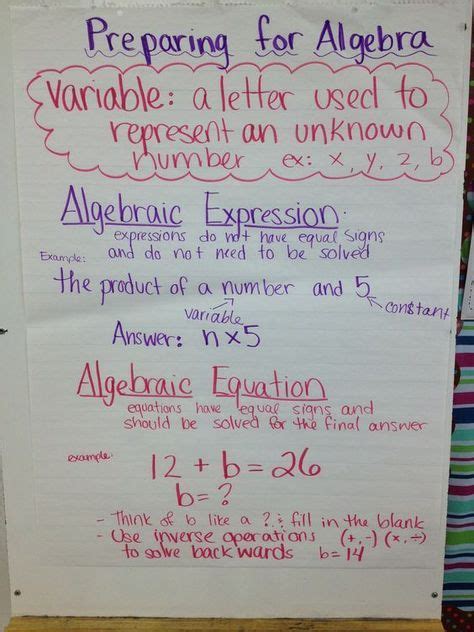 Preparing for Algebra
Variable: a letter used to
represent an unknown
number ex: x, y, z, b
Algebraic Expression:
expressions do not have equal signs
and do not need to be solved
Example:
the product of a number and 5
variable
constant
Answer: n×5
Algebraic Equation
equations have equal signs and
should be solved for the final answer
example:
12 + b = 26
b = ?
- Think of b like a ? & fill in the blank
- Use inverse operations (+,-) (×,÷)
to solve backwards b=14